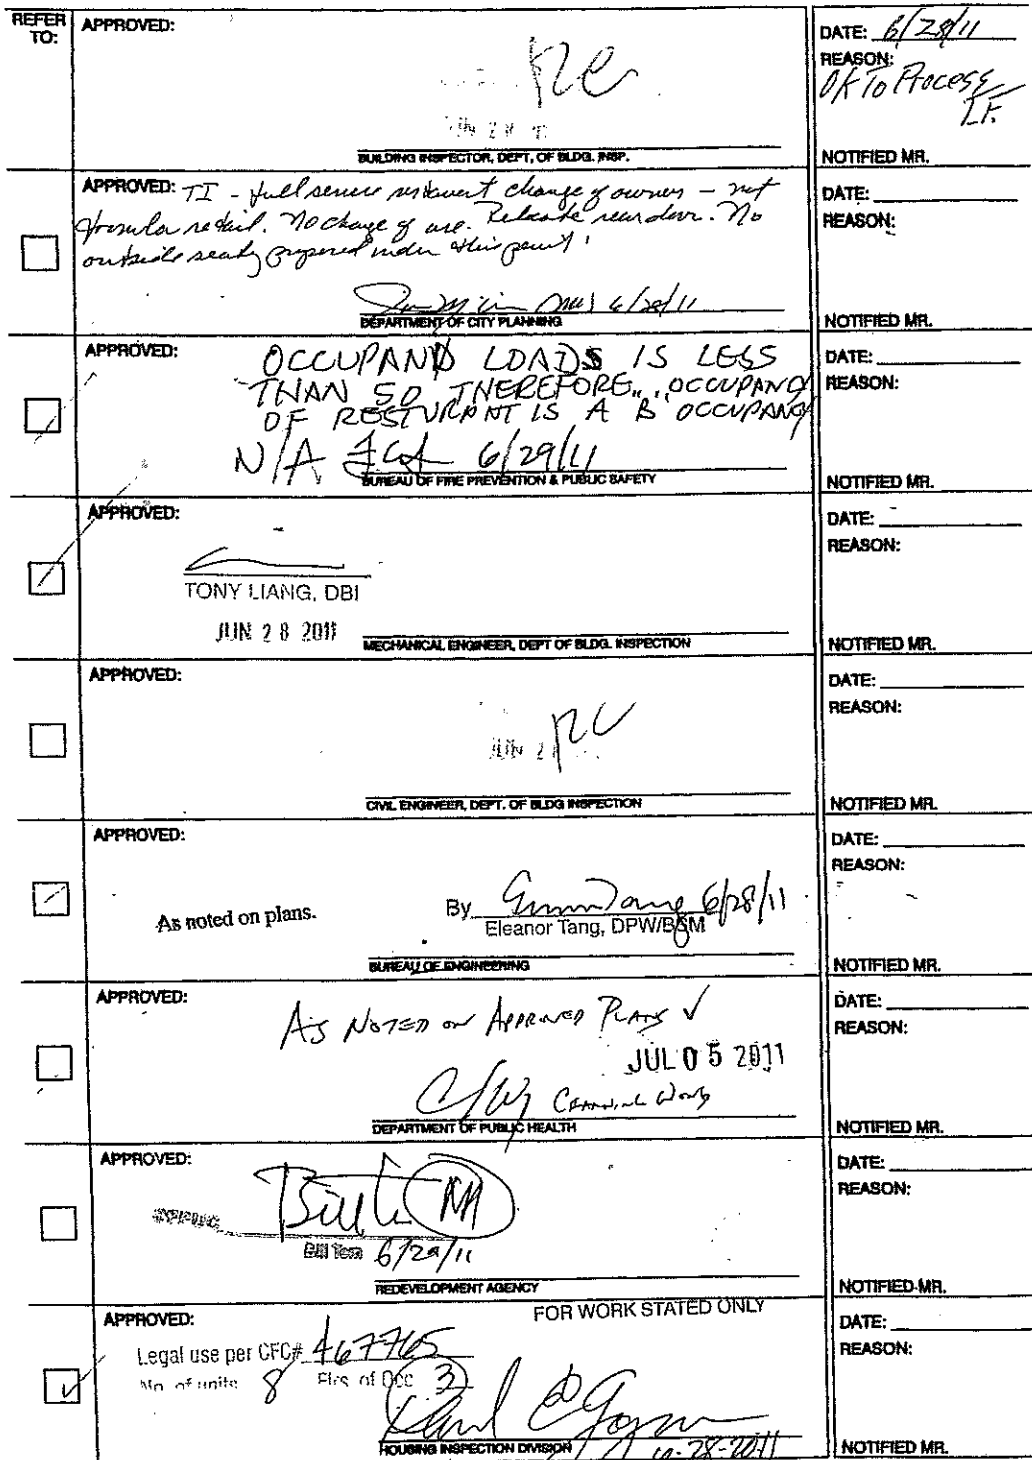 REFER TO:
APPROVED:
JUN 28
BUILDING INSPECTOR, DEPT. OF BLDG. INSP.
DATE: 6/28/11
REASON:
OK To Process
L.F.
NOTIFIED MR.
APPROVED: TI - full service restaurant change of owner - not
formula retail. No change of use. Relocate rear door. No
outside seating proposed under this permit.
6/28/11
DEPARTMENT OF CITY PLANNING
DATE:
REASON:
NOTIFIED MR.
APPROVED:
OCCUPAND LOADS IS LESS
THAN 50 THEREFORE, OCCUPANCY
OF RESTURANT IS A B OCCUPANCY
N/A 6/29/11
BUREAU OF FIRE PREVENTION & PUBLIC SAFETY
DATE:
REASON:
NOTIFIED MR.
APPROVED:
TONY LIANG, DBI
JUN 28 2011
MECHANICAL ENGINEER, DEPT OF BLDG. INSPECTION
DATE:
REASON:
NOTIFIED MR.
APPROVED:
JUN 2
CIVIL ENGINEER, DEPT. OF BLDG INSPECTION
DATE:
REASON:
NOTIFIED MR.
APPROVED:
As noted on plans.
By 6/28/11
Eleanor Tang, DPW/BSM
BUREAU OF ENGINEERING
DATE:
REASON:
NOTIFIED MR.
APPROVED:
As NOTED on APPROVED PLANS ✓
JUL 05 2011
DEPARTMENT OF PUBLIC HEALTH
DATE:
REASON:
NOTIFIED MR.
APPROVED:
Bill
6/29/11
REDEVELOPMENT AGENCY
DATE:
REASON:
NOTIFIED MR.
APPROVED:
FOR WORK STATED ONLY
Legal use per CFC# 467765
No. of units 8 Flrs. of Occ 3
HOUSING INSPECTION DIVISION
DATE:
REASON:
NOTIFIED MR.